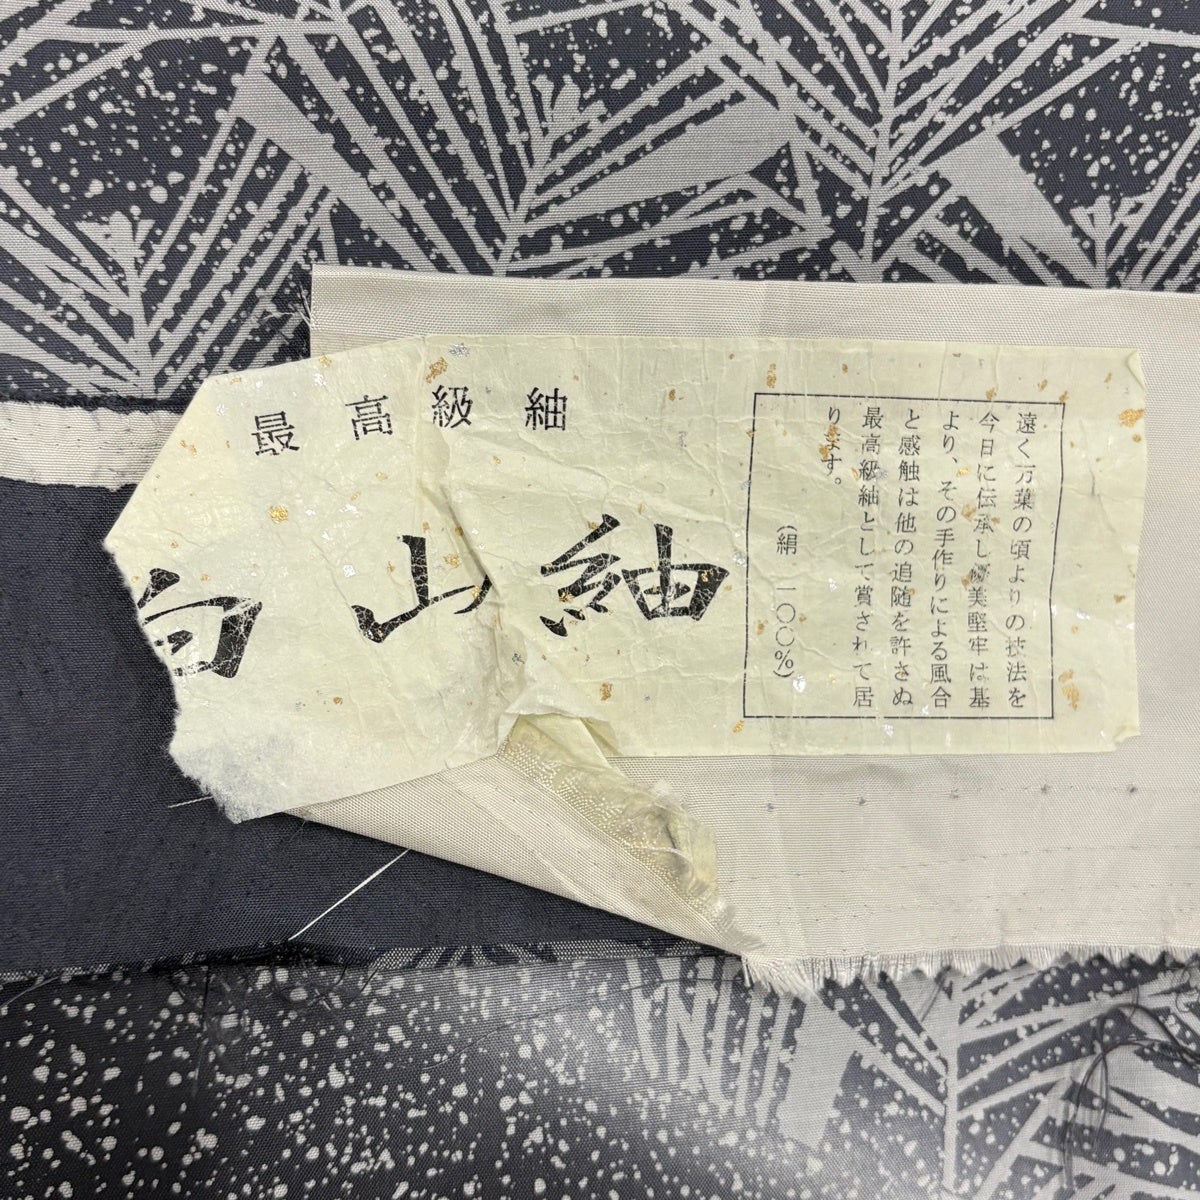 最高級紬
山紬
遠く万葉の頃よりの技法を
今日に伝承し優美堅牢は基
より、その手作りによる風合
と感触は他の追随を許さぬ
最高級紬として賞されて居
ります。
(絹 一〇〇%)